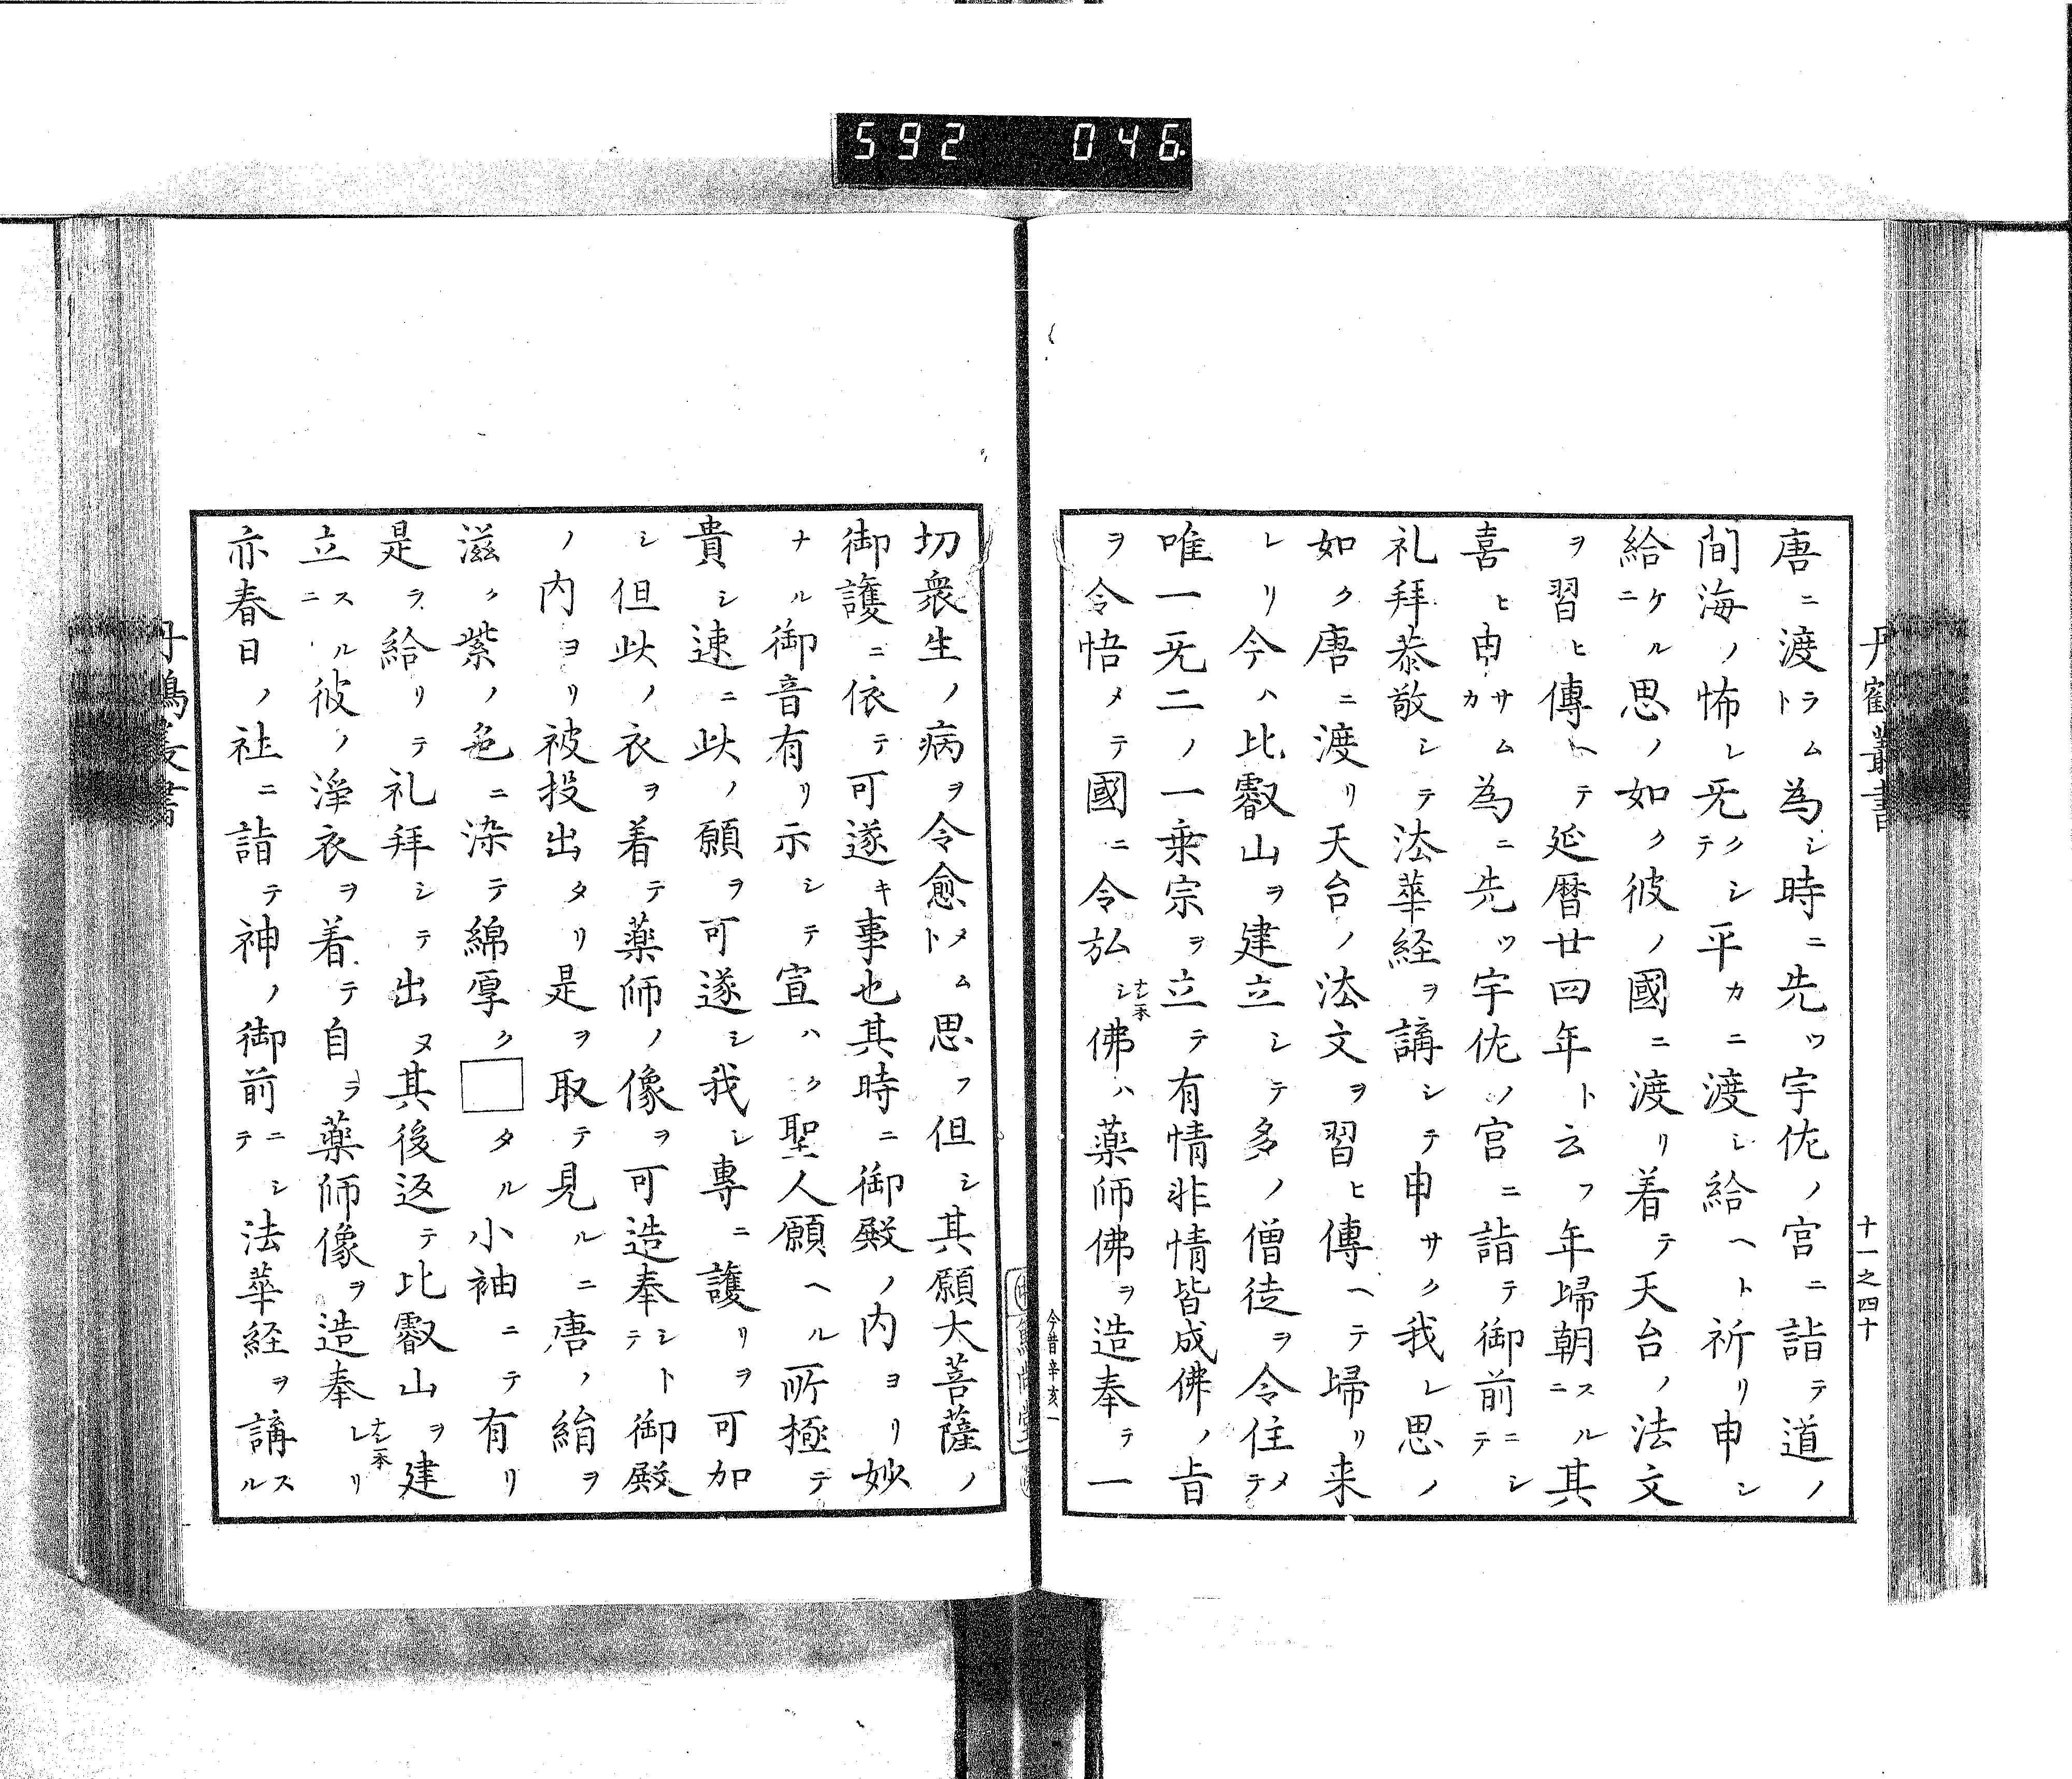 592 046
丹鶴叢書
十一之四十
唐ニ渡ラムト為シ時ニ先ツ宇佐ノ宮ニ詣テ道ノ
間海ノ怖レ无クシテ平カニ渡シ給ヘト祈リ申シ
給ケルニ思ノ如ク彼ノ國ニ渡リ着テ天台ノ法文
ヲ習ヒ傳ヘテ延暦廿四年ト云フ年歸朝スルニ其
喜ヒ申サムカ為ニ先ツ宇佐ノ宮ニ詣テ御前ニシテ
礼拜恭敬シテ法華経ヲ講シテ申サク我レ思ノ
如ク唐ニ渡リ天台ノ法文ヲ習ヒ傳ヘテ歸リ来
レリ今ハ比叡山ヲ建立シテ多ノ僧徒ヲ令住メテ
唯一无二ノ一乗宗ヲ立テ有情非情皆成佛ノ旨
ヲ令悟メテ國ニ令弘シナシ一本佛ハ薬師佛ヲ造奉テ一
今昔辛亥一
切衆生ノ病ヲ令愈メムト思フ但シ其願大菩薩ノ
御護ニ依テ可遂キ事也其時ニ御殿ノ内ヨリ妙
ナル御音有リ示シテ宣ハク聖人願ヘル所極テ
貴シ速ニ此ノ願ヲ可遂シ我レ專ニ護リヲ可加
シ但此ノ衣ヲ着テ薬師ノ像ヲ可造奉シトテ御殿
ノ内ヨリ被投出タリ是ヲ取テ見ルニ唐ノ絹ヲ
滋ク紫ノ色ニ染テ綿厚ク□タル小袖ニテ有リ
是ラ給リテ礼拜シテ出ヌ其後返テ比叡山ヲ建
立スルニル彼ノ淨衣ヲ着テ自ラ薬師像ヲ造奉レナシ一本リ
亦春日ノ社ニ詣テ神ノ御前ニシテ法華経ヲ講スル
丹鶴叢書